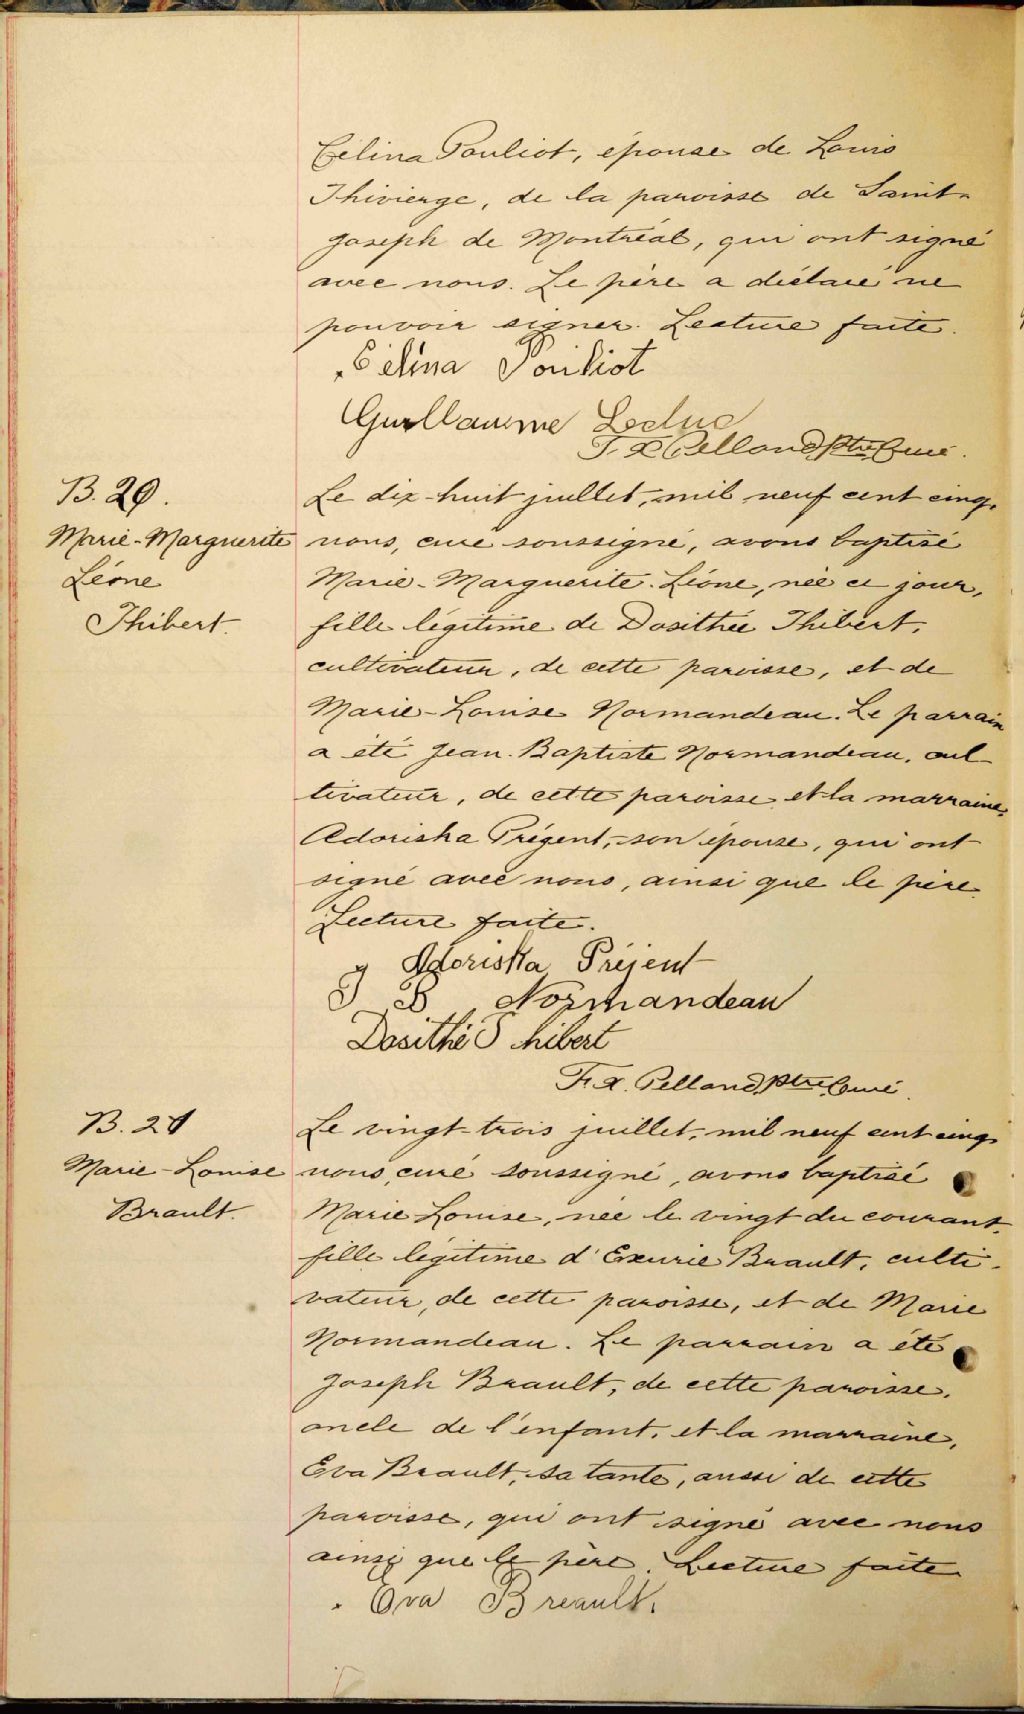 Célina Pouliot, épouse de Louis
Thivierge, de la paroisse de Saint-
Joseph de Montréal, qui ont signé
avec nous. Le père a déclaré ne
pouvoir signer. Lecture faite.
Célina Pouliot
Guillaume Leduc
F. X Pelland Ptre Curé.
B. 20.
Marie-Marguerite
Léone
Thibert.
Le dix-huit juillet, mil neuf cent cinq,
nous, curé soussigné, avons baptisé
Marie-Marguerite-Léone, née ce jour,
fille légitime de Dosithée Thibert,
cultivateur, de cette paroisse, et de
Marie-Louise Normandeau. Le parrain
a été Jean-Baptiste Normandeau, cul-
tivateur, de cette paroisse et la marraine,
Adoriska Prégent, son épouse, qui ont
signé avec nous, ainsi que le père.
Lecture faite.
Adoriska Préjent
J B Normandeau
Dosithé Thibert
F. X. Pelland, Ptre Curé.
B. 21
Marie-Louise
Brault.
Le vingt-trois juillet, mil neuf cent cinq
nous, curé soussigné, avons baptisé
Marie Louise, née le vingt du courant,
fille légitime d'Exurie Brault, culti-
vateur, de cette paroisse, et de Marie
Normandeau. Le parrain a été
Joseph Brault, de cette paroisse,
oncle de l'enfant, et la marraine,
Eva Brault, sa tante, aussi de cette
paroisse, qui ont signé avec nous
ainsi que le père. Lecture faite
Eva Breault.